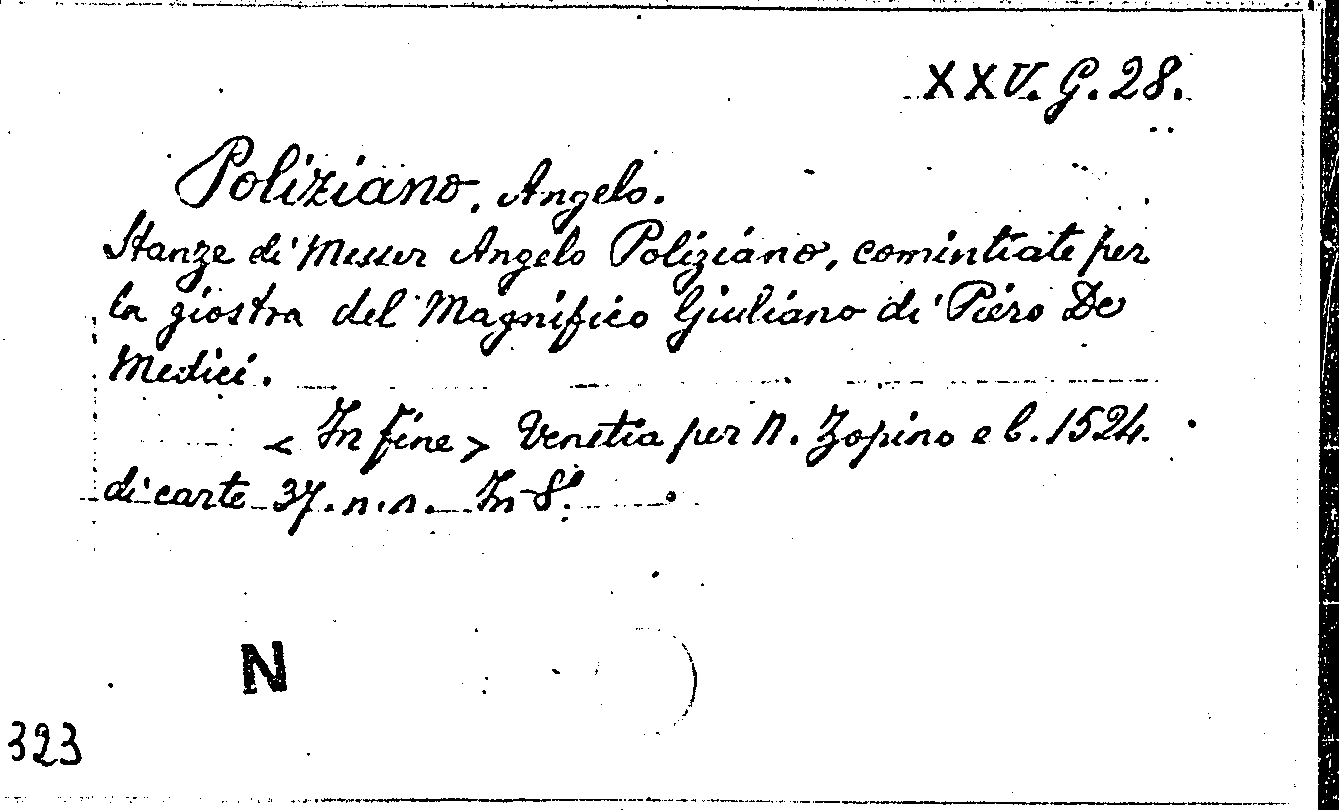 XXV. G. 28.
Poliziano, Angelo.
Stanze di Messer Angelo Poliziano, comintiate per
la giostra del Magnifico Giuliano di Piero De
Medici.
< In fine > Venetia per N. Zopino e C. 1524.
di carte 37. n. n. In 8°.
N
323